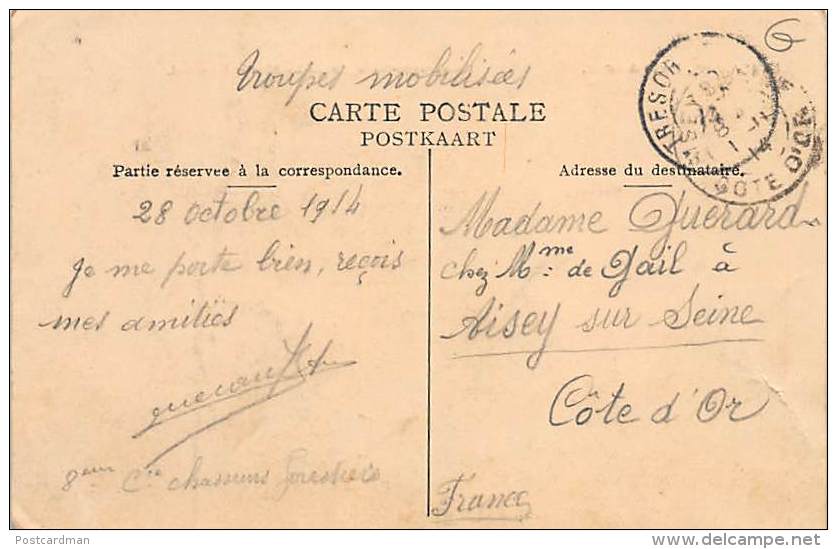 Troupes mobilisées
CARTE POSTALE
POSTKAART
Partie réservée à la correspondance.
28 Octobre 1914
Je me porte bien, reçois
mes amitiés
8ème Cie chasseurs forestiers
Adresse du destinataire.
Madame Guerard
chez Mme de Gail à
Aisey sur Seine
Côte d'Or
France
TRESOR
COTE D'OR
6
Postcardman
delcampe.net